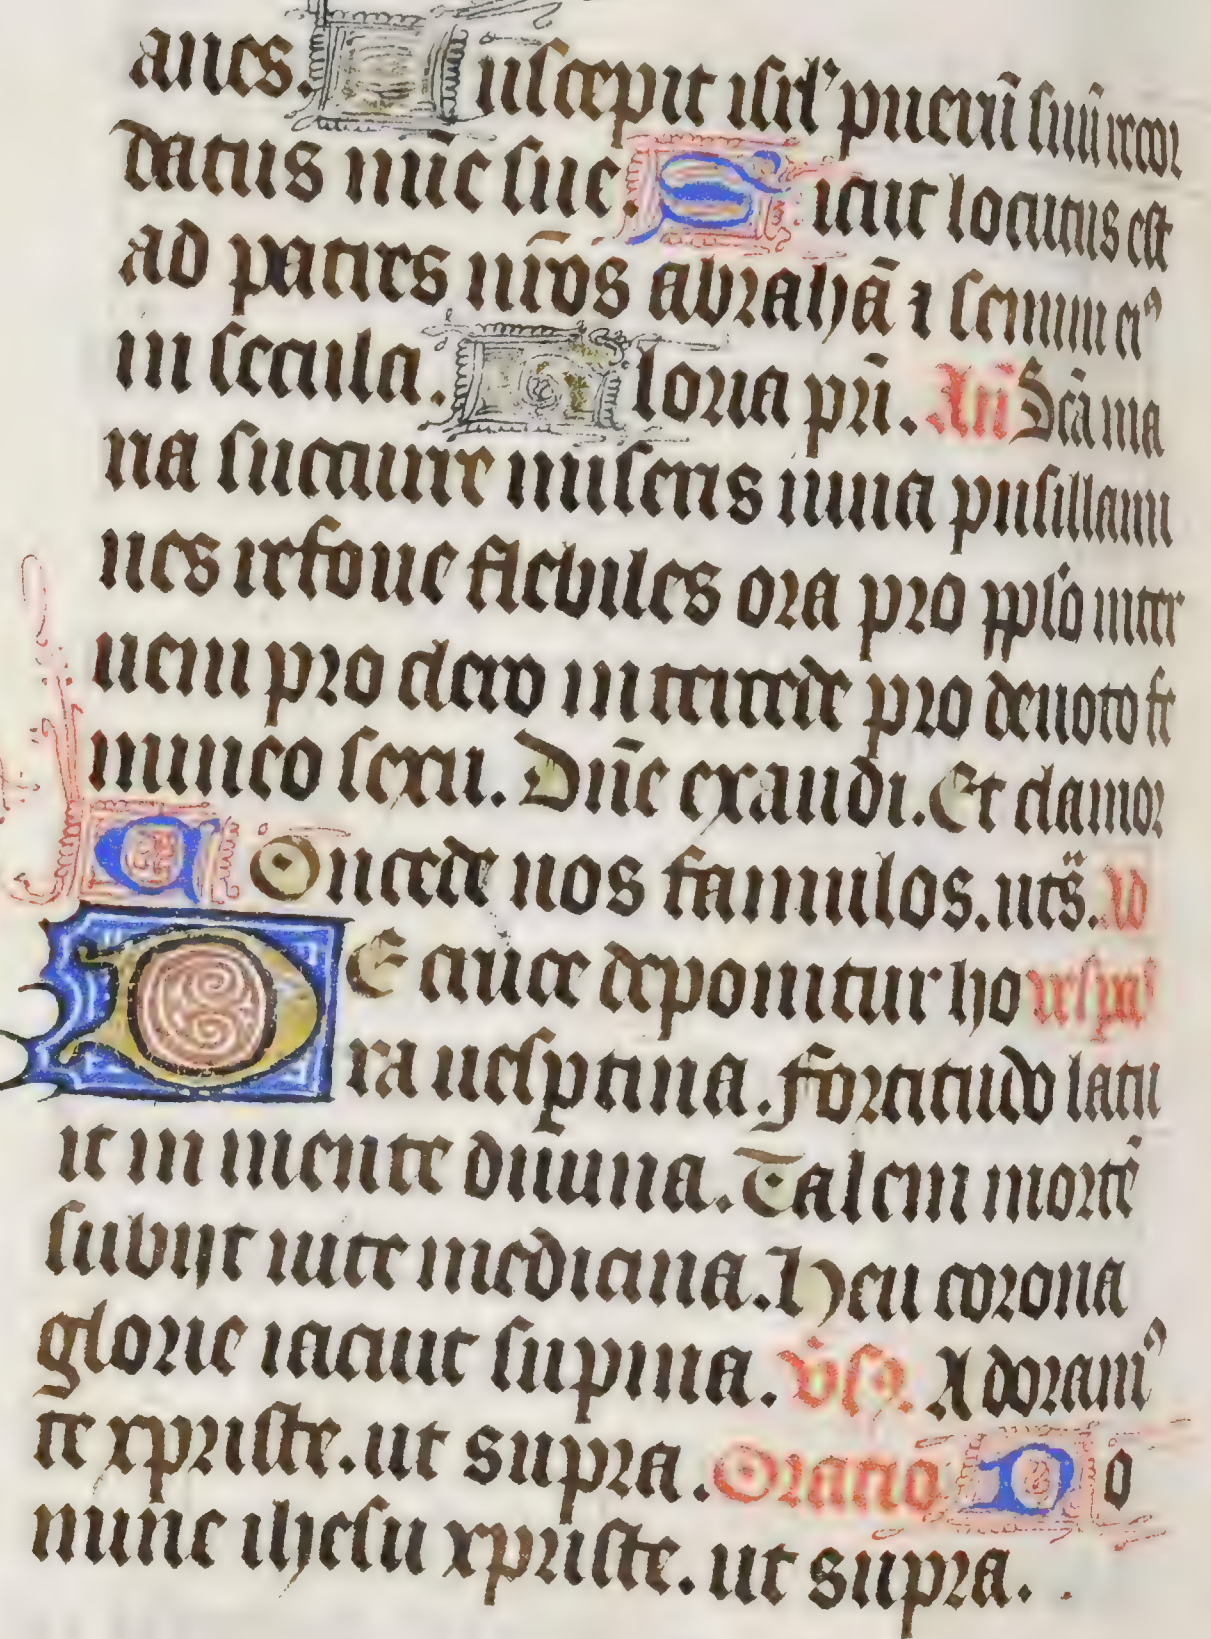 anes. Suscepit isrl' puerū suū recor
datus mīe sue. Sicut locutus est
ad patres nr̄os abrahā ⁊ semini ei⁹
in secula. Gloria pr̄i. An̄ Scā ma
ria succurre miseris iuua pusillani
mes refoue flebiles ora pro pplo inter
ueni pro clero intercede pro deuoto fe
mineo sexu. Dn̄e exaudi. Et clamor
Concede nos famulos. uts̄. Ad
DE cruce deponitur ho uesp̄as
ra uesptina. fortitudo latu
it in mente diuina. Talem mortē
subijt uite medicina. Heu corona
glorie iacuit supina. v̄sꝯ. Adoram⁹
te xpriste. ut supra. Oratio Do
mine ihesu xpriste. ut supra.